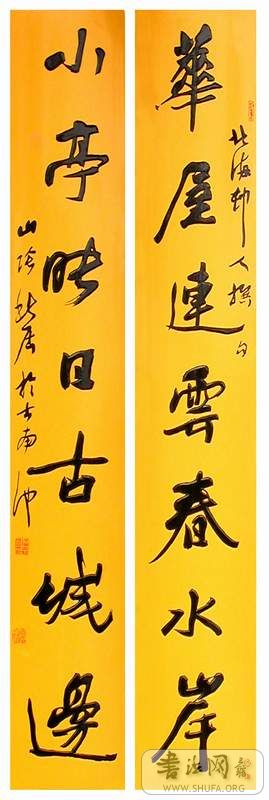 華屋連雲春水岸
北海郡人撰句
小亭映日古城邊
書法网
WWW.SHUFA.ORG